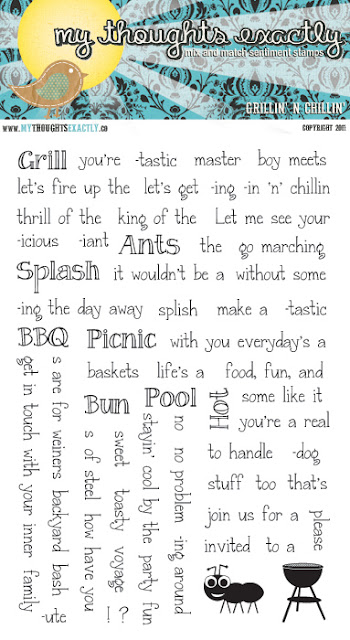 my thoughts exactly
mix and match sentiment stamps
GRILLIN' N CHILLIN
WWW.MYTHOUGHTSEXACTLY.CO
COPYRIGHT 2011
Grill you're -tastic master boy meets
let's fire up the let's get -ing -in 'n' chillin
thrill of the king of the Let me see your
-icious -iant Ants the go marching
Splash it wouldn't be a without some
-ing the day away splish make a -tastic
BBQ Picnic with you everyday's a
baskets life's a food, fun, and
Bun Pool HOT some like it
you're a real
to handle -dog
stuff too that's
join us for a
invited to a
please
get in touch with your inner family
s are for weiners backyard bash -ute
s of steel how have you
sweet toasty voyage ! ?
stayin' cool by the party fun
no no problem -ing around